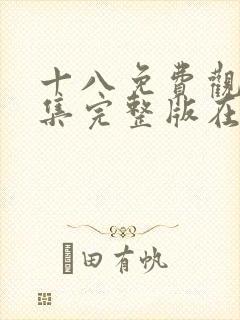 十八免費觀
集完整版在
田有帆